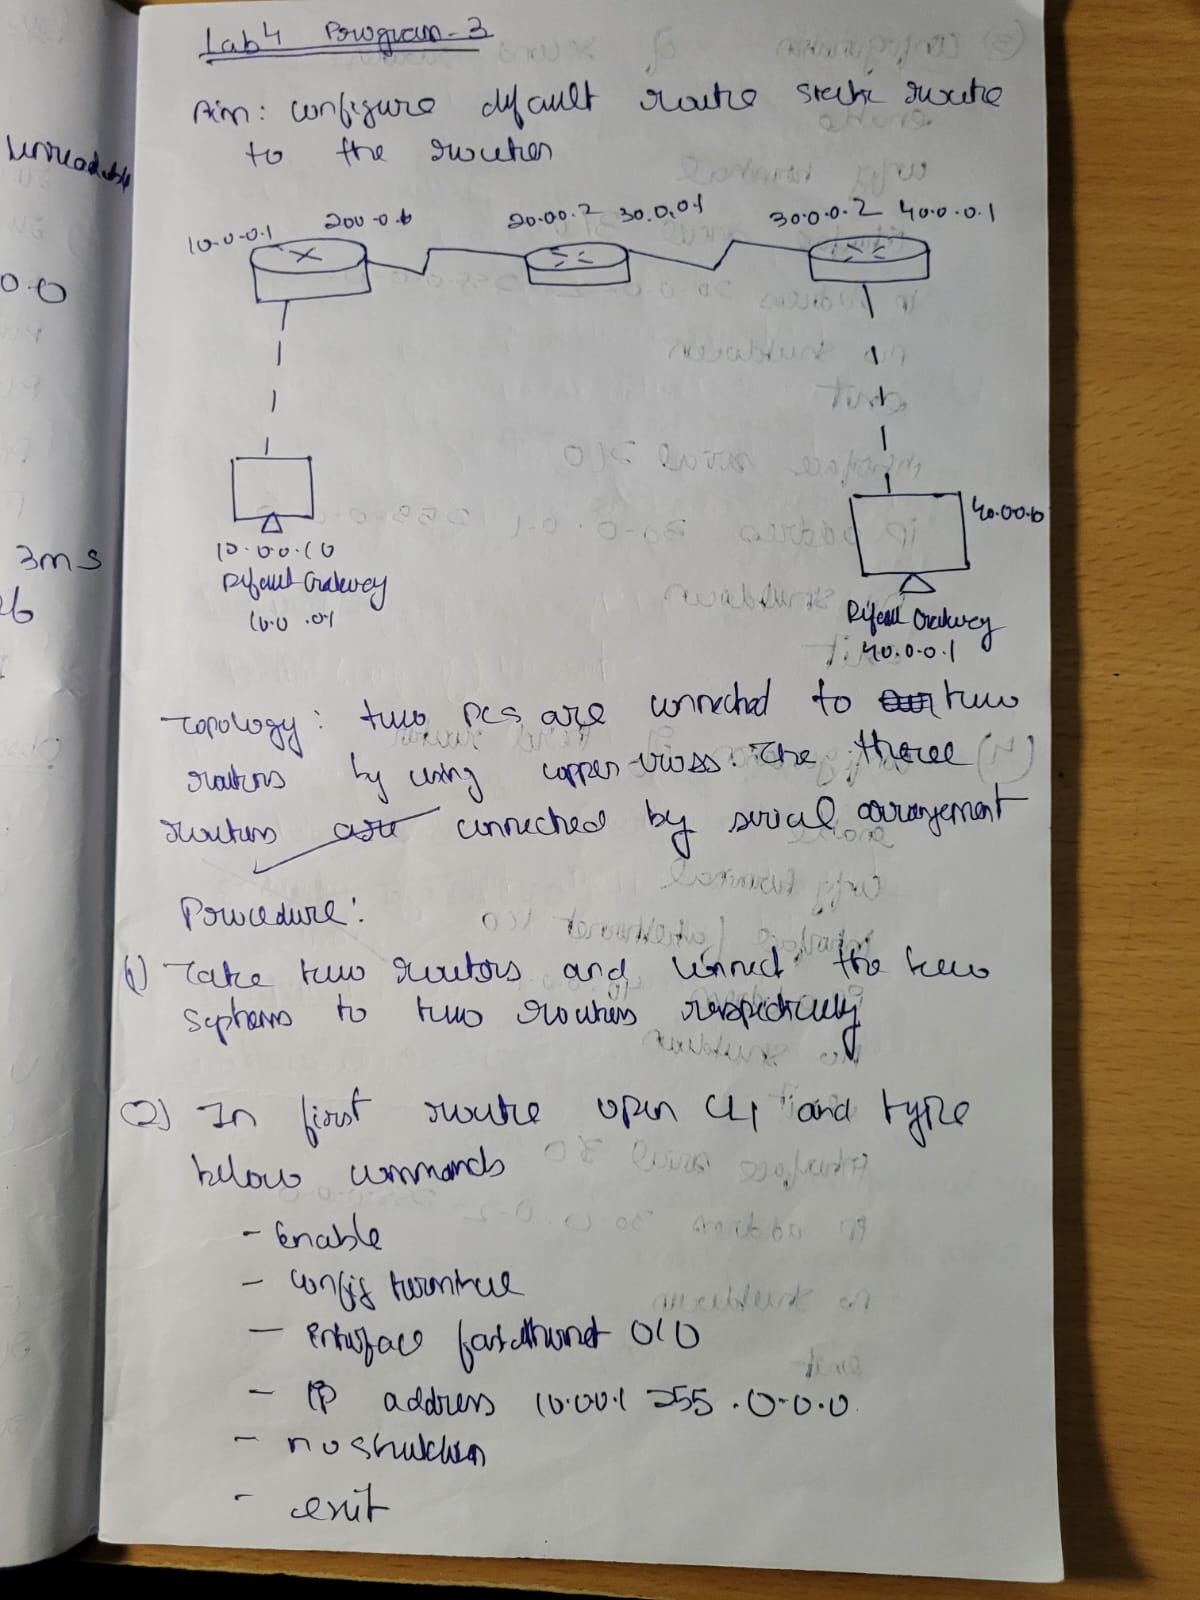 Lab 4 Program-3
Aim: configure default route static route
to the router
10.0.0.1 200.0.6 20.00.2 30.0.0.1 30.0.0.2 40.0.0.1
40.00.0
10.00.10
Default Gateway
10.0.01
Default Gateway
40.0.0.1
Topology: two PCs are connected to two
routers by using copper cross. The three
routers are connected by serial arrangement
Procedure:
(1) Take two routors and connect the two
systems to two routers respectively
(2) In first route open CLI and type
below commands
- Enable
- config terminal
- Interface fastethernet 0/0
- IP address 10.00.1 255.0.0.0
- no shutdown
- exit
0.0
3ms